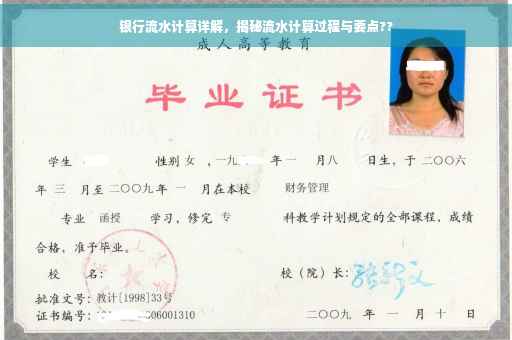 银行流水计算详解，揭秘流水计算过程与要点??
成人高等教育
毕业证书
学生 性别 女 ，一九 年 一 月八 日生，于 二〇〇六
年 三 月至 二〇〇九 年 一 月在本校 财务管理
专业 函授 学习，修完 专 科教学计划规定的全部课程，成绩
合格，准予毕业。
校 名： 校（院）长：
批准文号：教计[1998]33号
证书编号： 06001310 二〇〇九 年 一 月 十 日